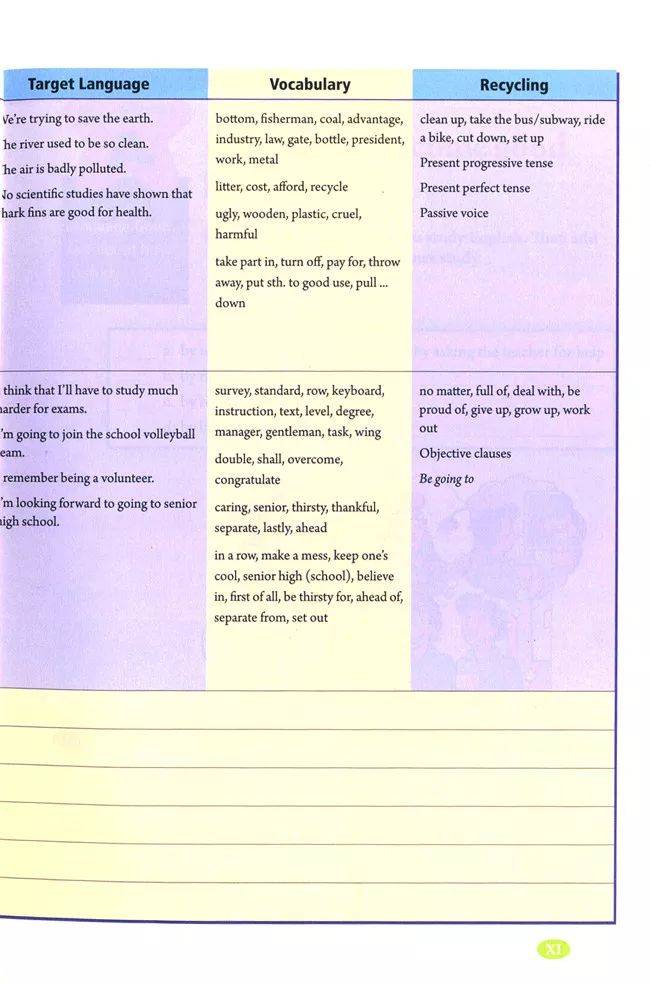 Target Language
We're trying to save the earth.
he river used to be so clean.
he air is badly polluted.
No scientific studies have shown that
hark fins are good for health.
Vocabulary
bottom, fisherman, coal, advantage,
industry, law, gate, bottle, president,
work, metal
litter, cost, afford, recycle
ugly, wooden, plastic, cruel,
harmful
take part in, turn off, pay for, throw
away, put sth. to good use, pull ...
down
Recycling
clean up, take the bus/subway, ride
a bike, cut down, set up
Present progressive tense
Present perfect tense
Passive voice
think that I'll have to study much
arder for exams.
'm going to join the school volleyball
eam.
remember being a volunteer.
'm looking forward to going to senior
igh school.
survey, standard, row, keyboard,
instruction, text, level, degree,
manager, gentleman, task, wing
double, shall, overcome,
congratulate
caring, senior, thirsty, thankful,
separate, lastly, ahead
in a row, make a mess, keep one's
cool, senior high (school), believe
in, first of all, be thirsty for, ahead of,
separate from, set out
no matter, full of, deal with, be
proud of, give up, grow up, work
out
Objective clauses
Be going to
XI